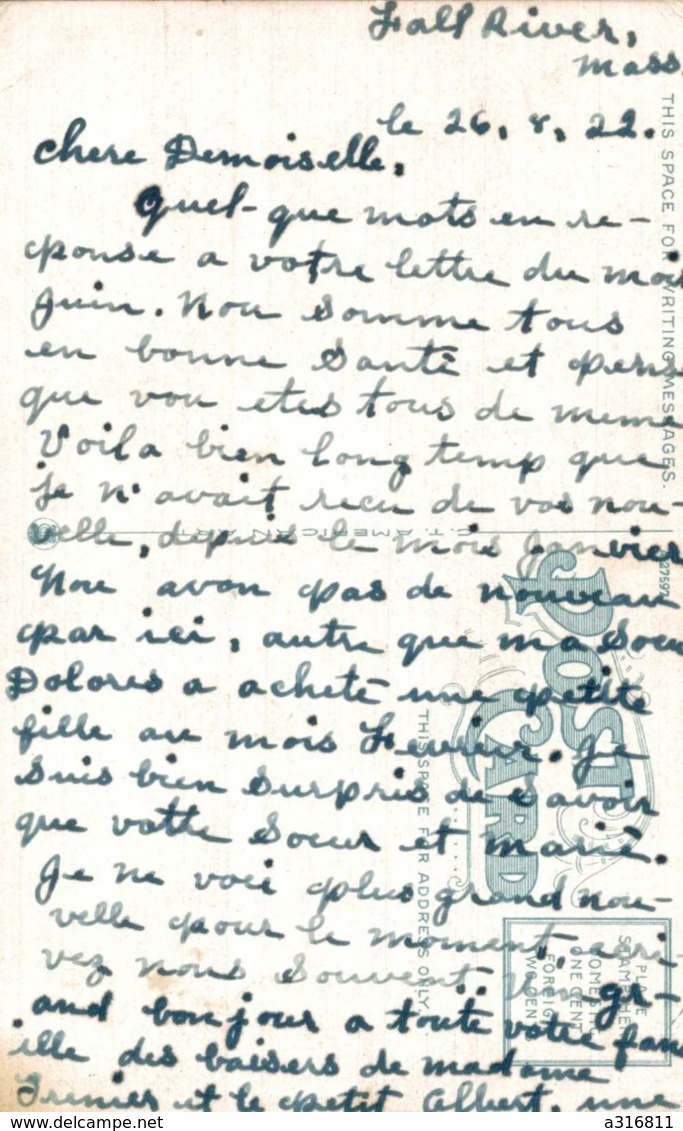 Fall River,
Mass.
le 26, 8, 22.
chere Demoiselle,
Quel-que mots en re-
ponse a votre lettre du mois
Juin. Nou somme tous
en bonne Santé et pense
que vou etes tous de meme
Voila bien long temp que
je n'avait recu de vos nou-
velle, depuis le mois Janvier
Nou avon pas de nouveau
par ici, autre que ma Soeur
Dolores a acheté une petite
fille au mois Fevrier. Je
suis bien surpris de savoir
que votre Soeur et marié.
Je ne voi plus grand nou-
velle pour le moment, ecri-
vez nous souvent Un gr-
and bonjour a toute votre fam
ille des baisers de madame
et le petit Albert, une
THIS SPACE FOR WRITING MESSAGES.
C.T. AMERICAN ART
POST CARD
THIS SPACE FOR ADDRESS ONLY.
PLACE
STAMP HERE
DOMESTIC
ONE CENT
FOREIGN
TWO CENTS
a316811